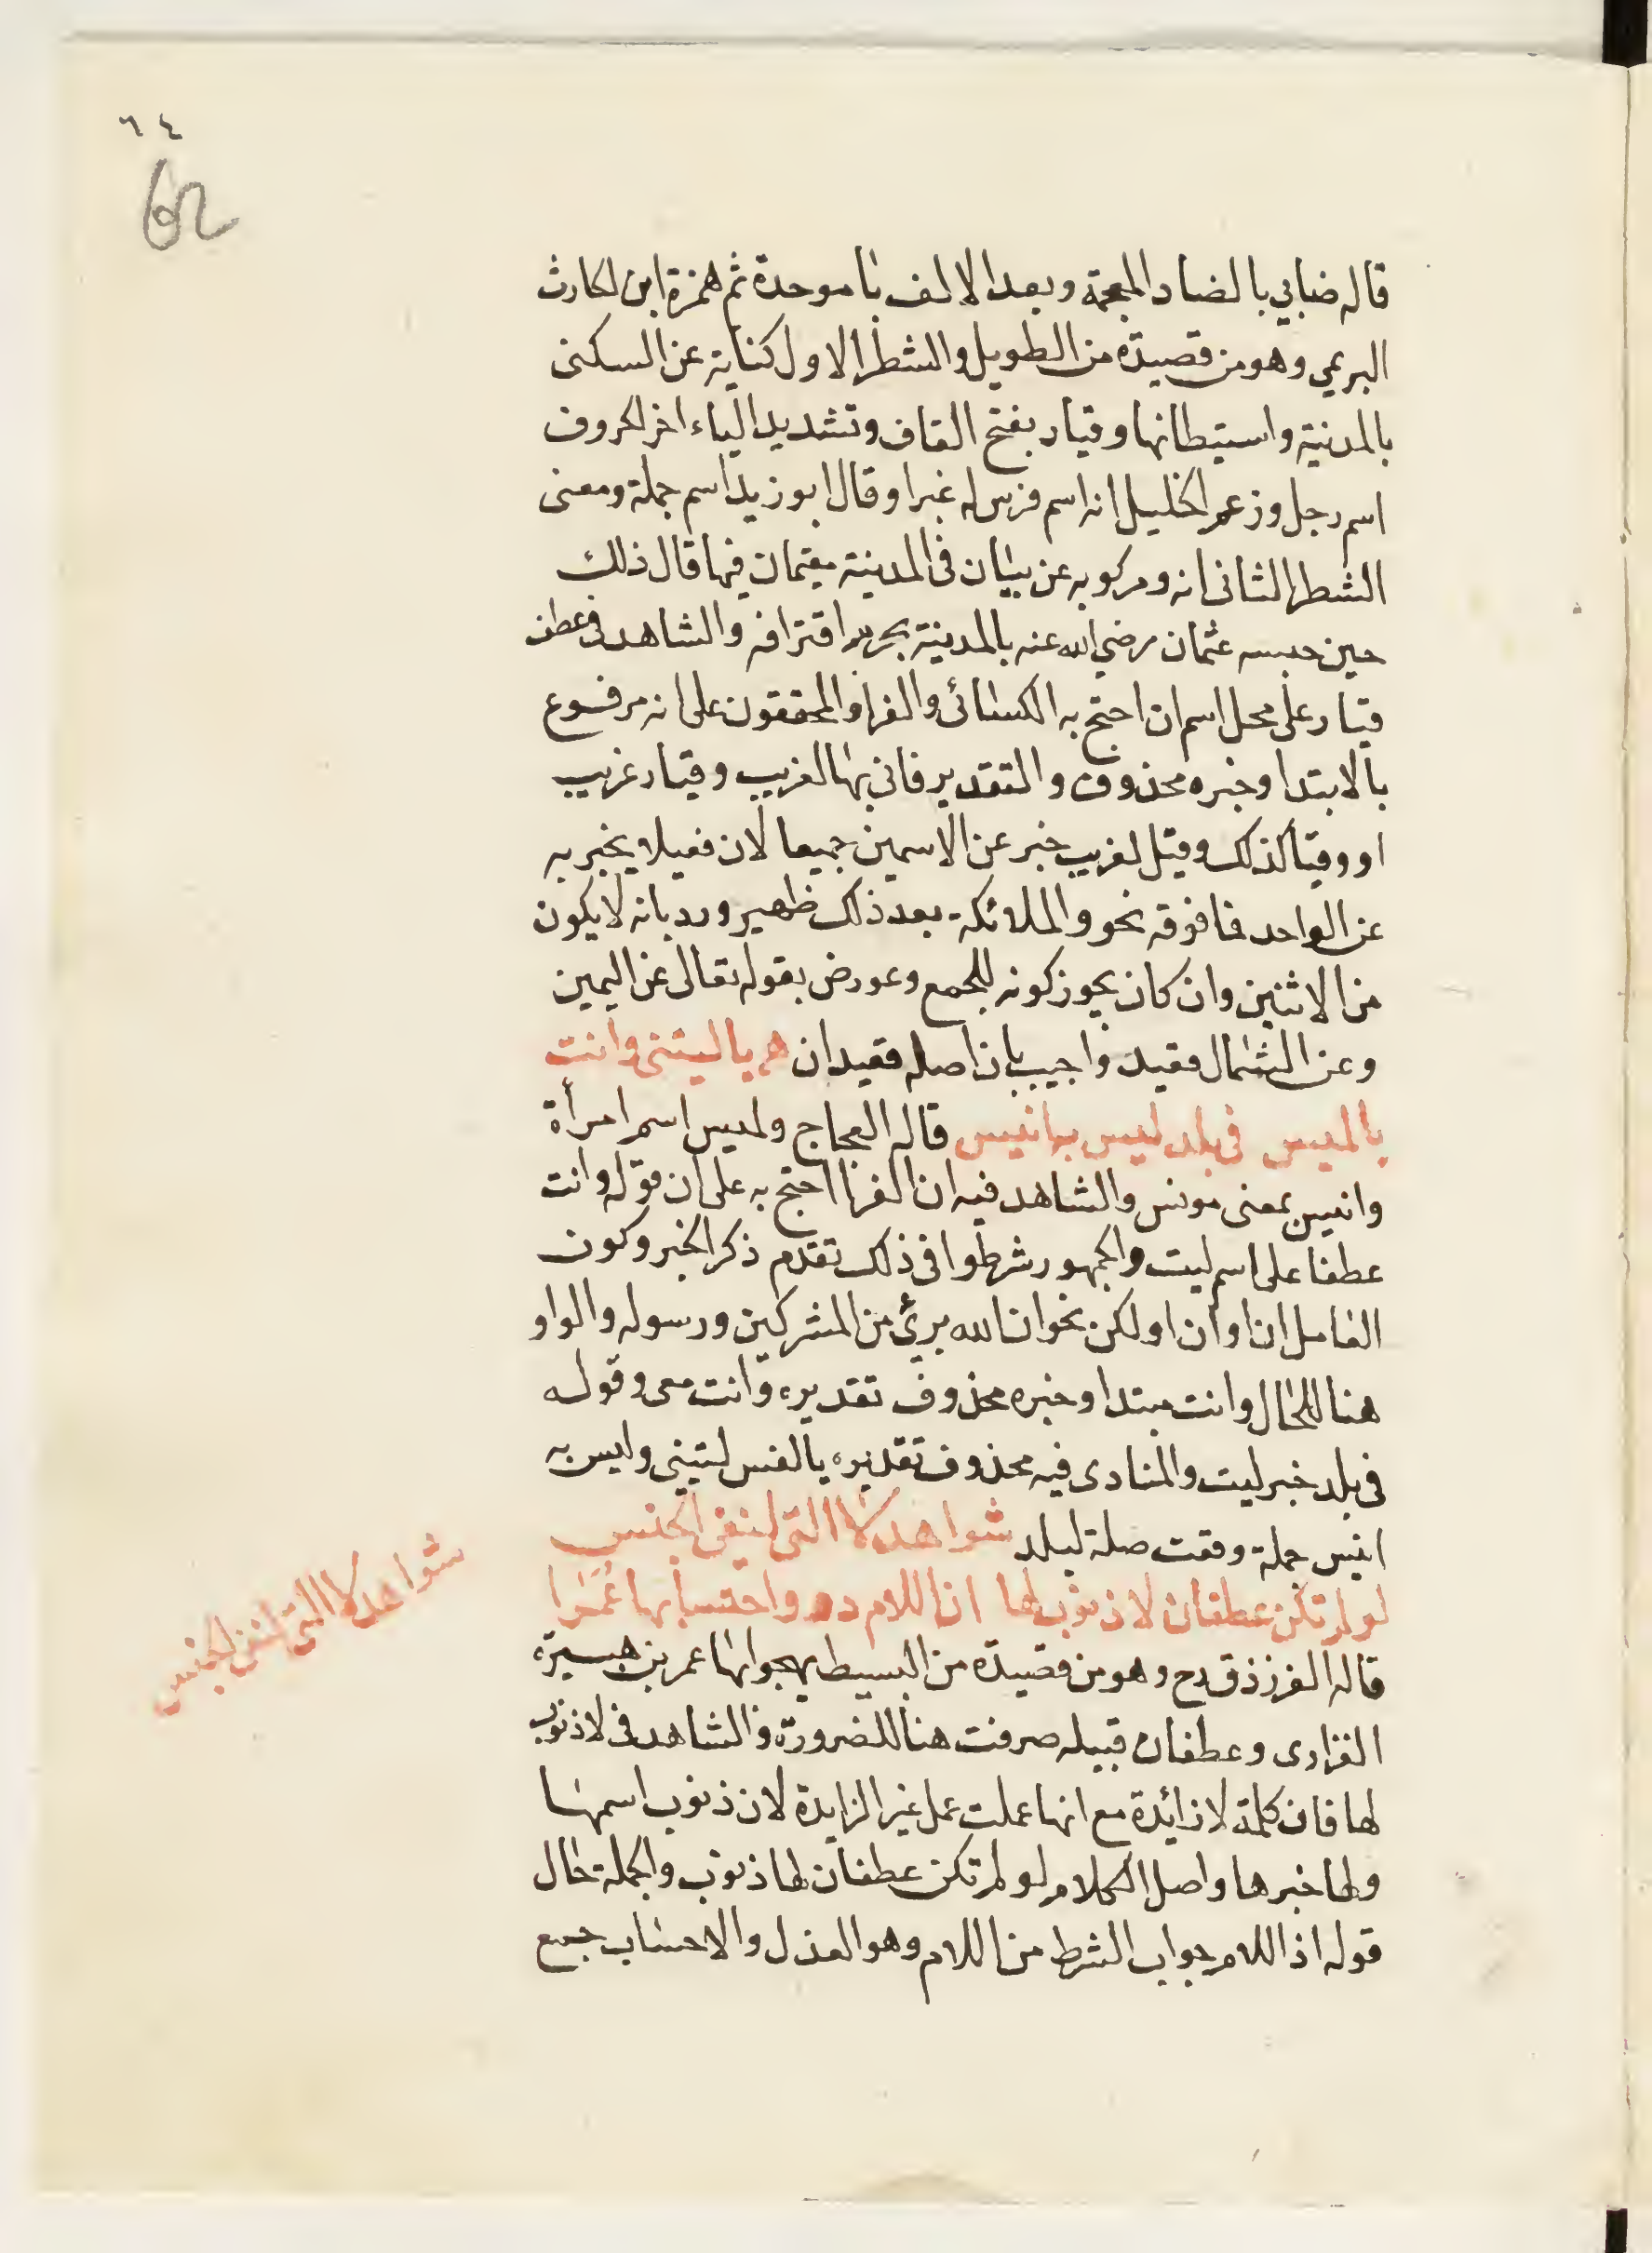 ٦٤
62
قاله ضابي بالضاد المعجمة وبعد الالف با موحدة ثم همزة ابن الحارث
البرجمي وهو من قصيدة من الطويل والشطر الاول كناية عن السكنى
بالمدنية واستيطانها وقيار بفتح القاف وتشديد الياء اخر الحروف
اسم رجل وزعم الخليل انه اسم فرس له غبرا وقال ابو زيد اسم جمله ومعنى
الشطر الثانى انه ومركوبه غريبان فى المدينة مقيمان فيها قال ذلك
حين حبسه عثمان رضي الله عنه بالمدينة بجرم اقترافه والشاهد فى عطف
قيار على محل اسم ان احتج به الكسائى والفرا والمحققون على انه مرفوع
بالابتدا وخبره محذوف والتقدير فانى بها لغريب وقيار غريب
او وقيا كذلك وقيل لغريب خبر عن الاسمين جميعا لان فعيلا يخبر به
عن الواحد فما فوقه نحو والملائكة بعد ذلك ظهير ورد بانه لا يكون
من الاثنين وان كان يجوز كونه للجمع وعورض بقوله تعالى عن اليمين
وعن الشمال قعيد واجيب بان اصله قعيدان ه يا ليتنى وانت
يا لميس فى بلد ليس بها انيس قاله العجاج ولميس اسم امرأة
وانيس بمعنى مونس والشاهد فيه ان الفرا احتج به على ان قوله وانت
عطفا على اسم ليت والجمهور شرطوا فى ذلك تقدم ذكر الخبر وكون
العامل ان او أن او لكن نحو ان الله برئ من المشركين ورسوله والواو
هنا للحال وانت مبتدا وخبره محذوف تقديره وانت معى وقوله
فى بلد خبر ليت والمنادى فيه محذوف تقديره يا لفس ليتيني وليس به
انيس جملة وقعت صلة لبلد شواهد لا التى لنفى الجنس
لو لم تكن عطفان لا ذنوب لها اذا للام ذوو احسابها عُمَرا
قاله الفرزذق رح وهو من قصيدة من البسيط يهجوا بها عمر بن هبيرة
الفزارى وعطفان قبيله صرفت هنا للضرورة والشاهد فى لا ذنوب
لها فان كلمة لا زائدة مع انها عملت عمل غير الزايدة لان ذنوب اسمها
ولها خبرها واصل الكلام لو لم تكن عطفان لها ذنوب والجملة حال
قوله اذا للام جواب الشرط من اللام وهو العذل والاحساب جمع
شواهد لا التى لنفى الجنس